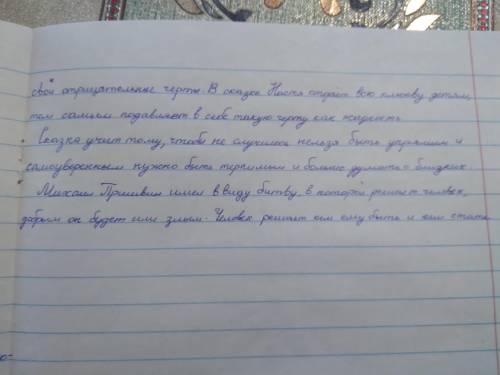 свои отрицательные черты. В сказке Настя отдаёт всю клюкву детям,
тем самым подавляет в себе такую черту как жадность
Сказка учит тому, чтобы не случилось нельзя быть упрямым и
самоуверенным нужно быть терпимым и больше думать о близких.
Михаил Пришвин имел в виду битву, в которой решает человек,
добрым он будет или злым. Человек решает кем ему быть и кем стать